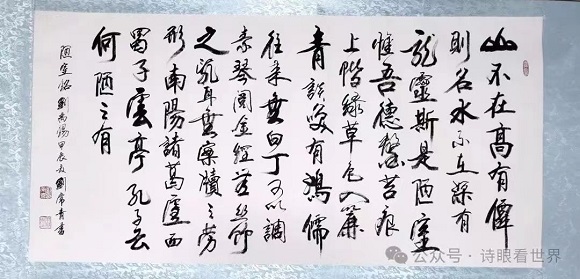 山不在高有僊
則名水不在深有
龍靈斯是陋室
惟吾德馨苔痕
上階綠草色入簾
青談笑有鴻儒
往來無白丁可以調
素琴閱金經無絲竹
之亂耳無案牘之勞
形南陽諸葛廬西
蜀子雲亭孔子云
何陋之有
陋室銘劉禹錫甲辰夏劉常青書
公众号·诗眼看世界